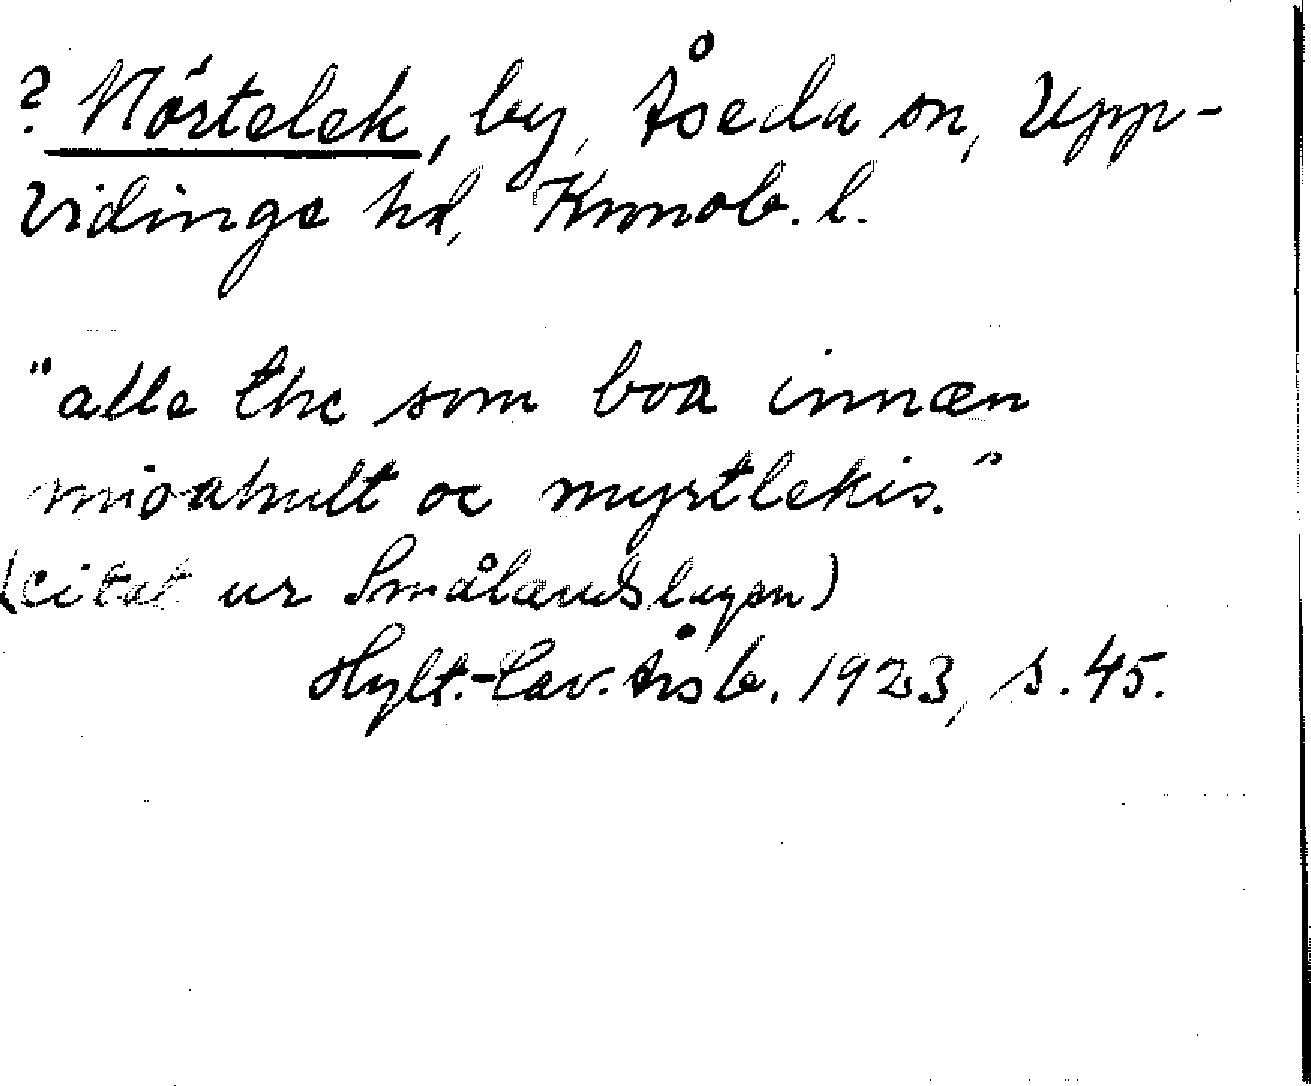 ? Nörtelek, by, Åseda sn, Upp-
vidinge hd, Kronob. l.
"alle the som boa innæn
mioahult oc myrtlekis."
(citat ur Smålandslagen)
Hylt.-Cav. Årsb. 1923, s. 45.